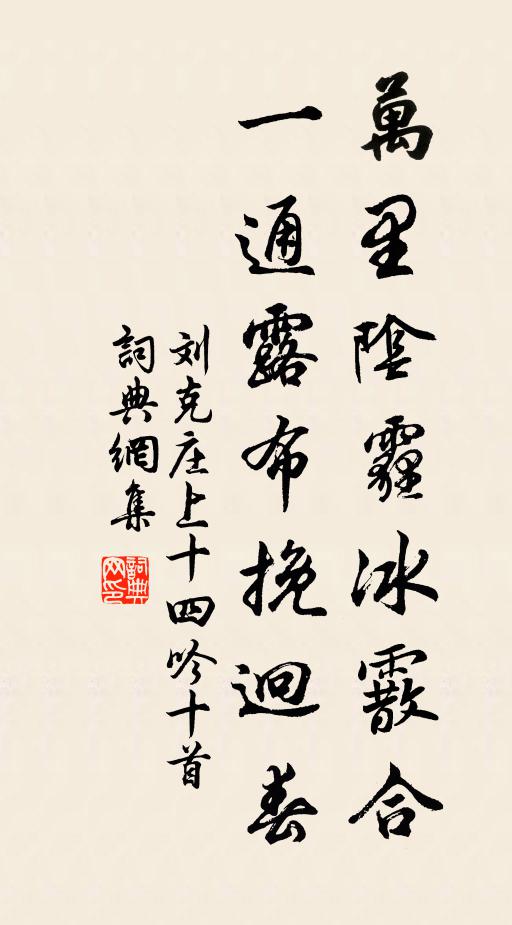 萬里陰霾冰霰合
一通露布挽迴春
刘克庄上十四吟十首
詞典網集
詞典网印